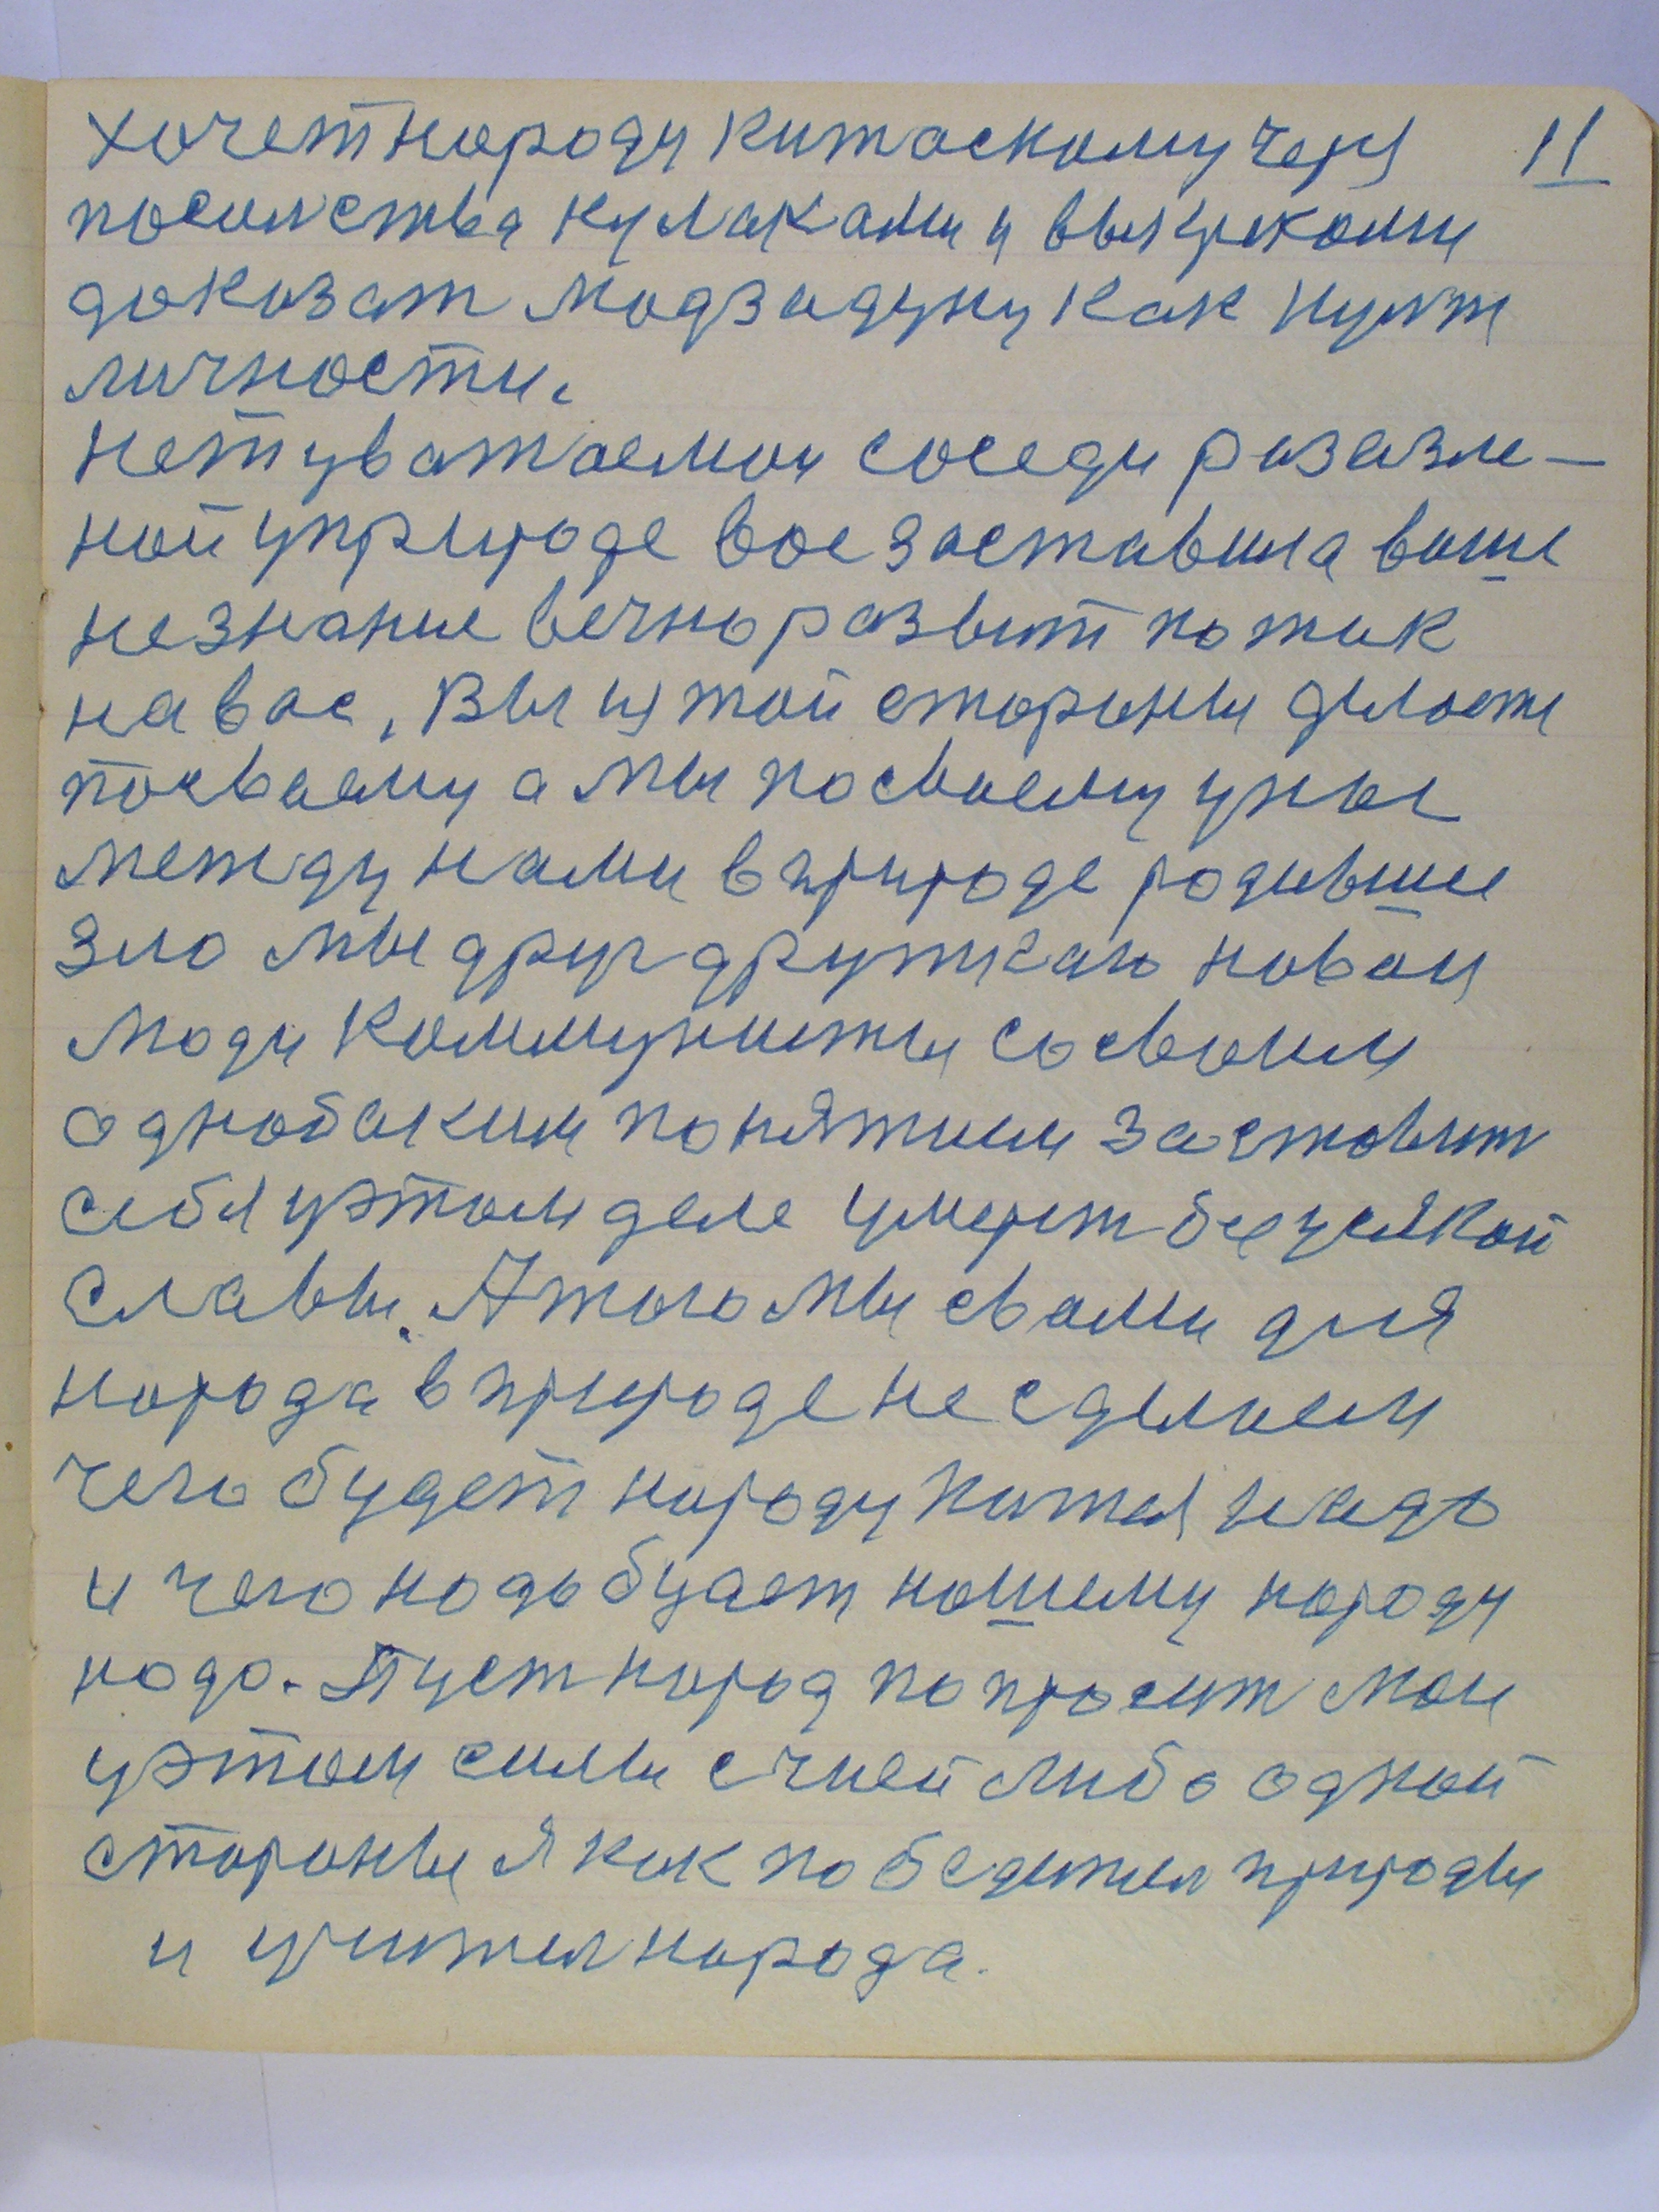 хочет народу китаскому через 11
посольства кулаками и выкрекоми
доказат модзадуну как культ
личности.
нет уважаемои соседи разазле-
ной уприроде вас заставила ваше
незнание вечно развит по так
на вас. Вы из той стороны делаете
посваему а мы посваему унас
между нами в природе родивше
зло мы друг дружкаю новои
люди Коммунисты со своим
однобаким понятием заставит
себя уэтом деле умерет без узякой
славы. А того мы свами для
народа в природе не сделаем
чего будет народу Китая надо
и чего надо будет нашему народу
надо. Пуст народ попросит мои
уэтом силы с чией либо одной
стороны я как победител природы
и учител народа.